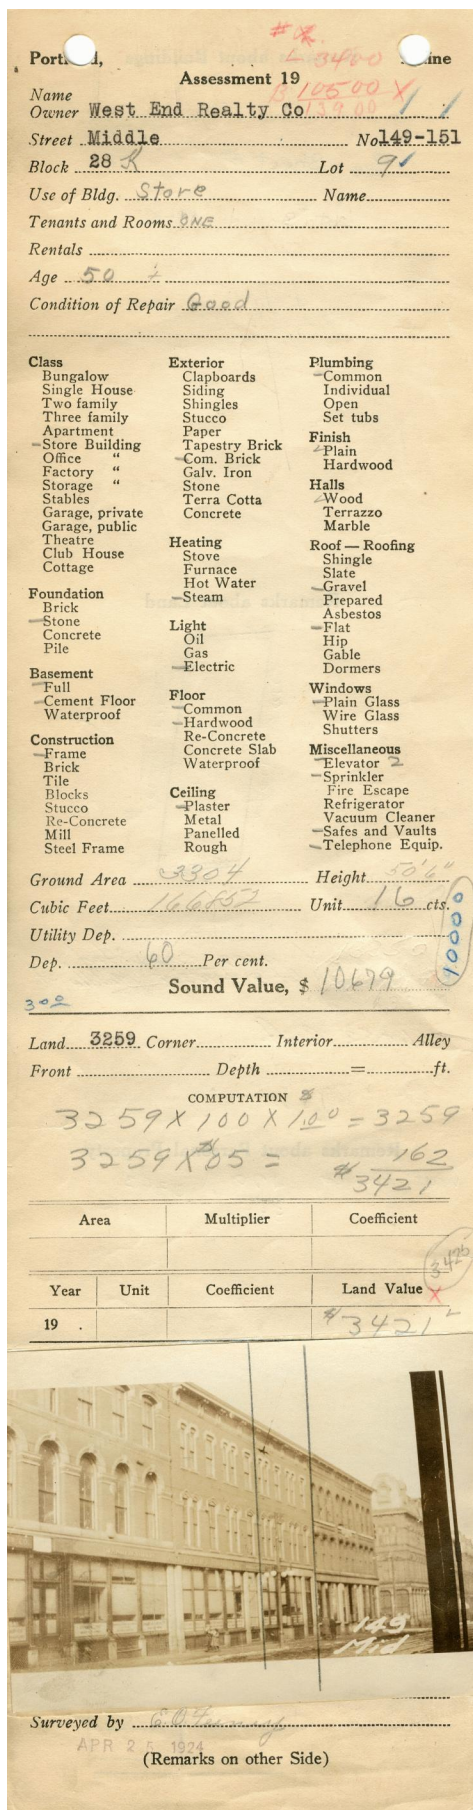 Portland, Maine
L 3400
Assessment 19
B 10500 X
13900
Name
Owner West End Realty Co
Street Middle No 149-151
Block 28 K Lot 9
Use of Bldg. Store Name
Tenants and Rooms ONE
Rentals
Age 50 ±
Condition of Repair Good
Class
Bungalow
Single House
Two family
Three family
Apartment
Store Building
Office "
Factory "
Storage "
Stables
Garage, private
Garage, public
Theatre
Club House
Cottage
Foundation
Brick
Stone
Concrete
Pile
Basement
Full
Cement Floor
Waterproof
Construction
Frame
Brick
Tile
Blocks
Stucco
Re-Concrete
Mill
Steel Frame
Exterior
Clapboards
Siding
Shingles
Stucco
Paper
Tapestry Brick
Com. Brick
Galv. Iron
Stone
Terra Cotta
Concrete
Heating
Stove
Furnace
Hot Water
Steam
Light
Oil
Gas
Electric
Floor
Common
Hardwood
Re-Concrete
Concrete Slab
Waterproof
Ceiling
Plaster
Metal
Panelled
Rough
Plumbing
Common
Individual
Open
Set tubs
Finish
Plain
Hardwood
Halls
Wood
Terrazzo
Marble
Roof — Roofing
Shingle
Slate
Gravel
Prepared
Asbestos
Flat
Hip
Gable
Dormers
Windows
Plain Glass
Wire Glass
Shutters
Miscellaneous
Elevator 2
Sprinkler
Fire Escape
Refrigerator
Vacuum Cleaner
Safes and Vaults
Telephone Equip.
Ground Area 3304 Height 50'6"
Cubic Feet 166852 Unit 16 cts.
Utility Dep.
10000
Dep. 60 Per cent.
Sound Value, $ 10679
300
Land 3259 Corner Interior Alley
Front Depth = ft.
COMPUTATION
3259 X 100 X 1.00 = 3259
3259 X .05 = 162
$3421
Area Multiplier Coefficient
3425
Year Unit Coefficient Land Value X
19 . $3421
149
Mid
Surveyed by
APR 25 1924
(Remarks on other Side)